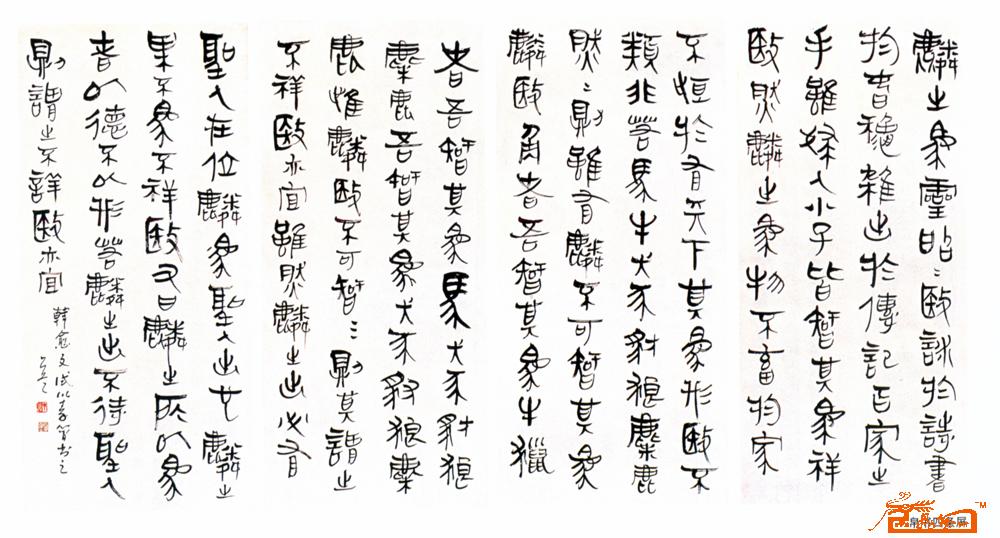 麟之為靈昭〻殹詠於詩書
於春穐雜出於傳記百家之
乎雖婦人小子皆智其為祥
殹然麟之為物不畜於家
不恒於有天下其為形殹不
類非若馬牛犬豕豺狼麋鹿
然〻則雖有麟不可智其為
麟殹角者吾智其為牛獵
者吾智其為馬犬豕豺狼
麋鹿吾智其為犬豕豺狼麋
鹿惟麟殹不可智〻則其謂之
不祥殹亦宜雖然麟之出必有
聖人在位麟為聖人出也麟之
果不為不祥殹又曰麟之所以為
者以德不以形若麟之出不待聖人
則謂之不詳殹亦宜
韓愈文